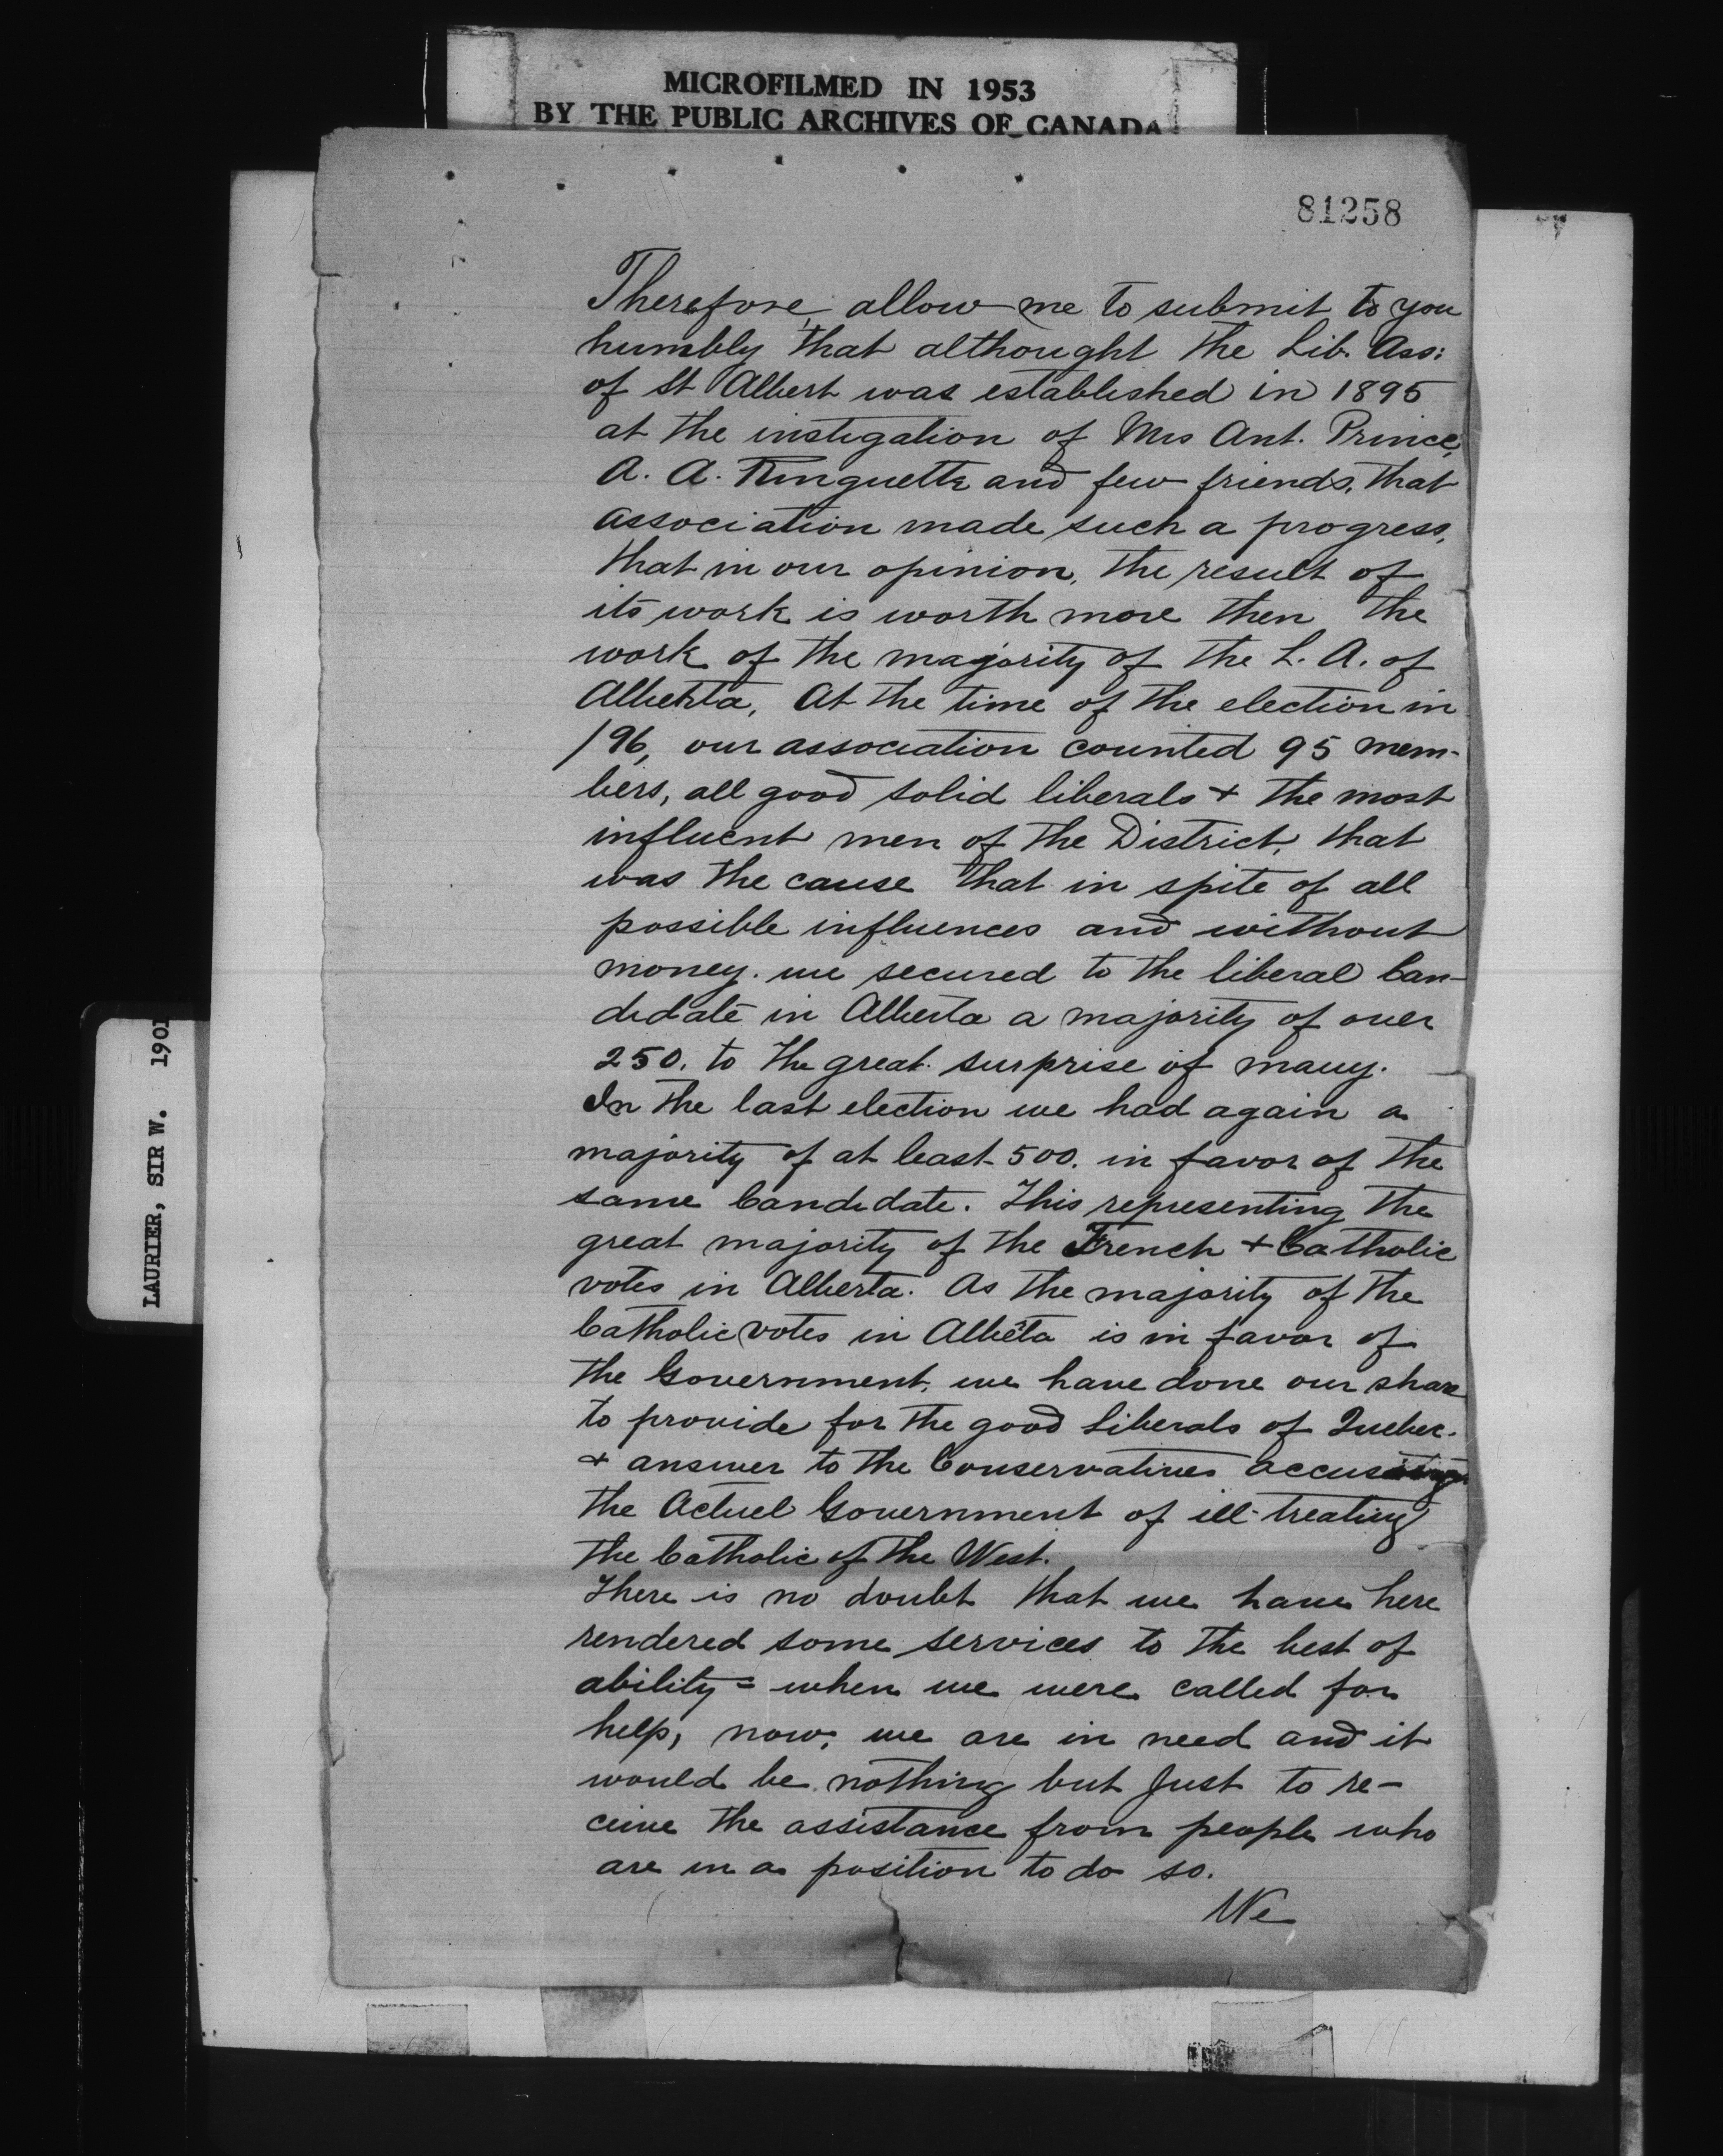 MICROFILMED IN 1953
BY THE PUBLIC ARCHIVES OF CANADA
81258
Therefore, allow me to submit to you
humbly that althought the Lib. Ass:
of St Albert was established in 1895
at the instigation of Mrs Ant. Prince,
A. A. Ringuette and few friends, that
association made such a progress,
that in our opinion, the result of
its work is worth more then the
work of the majority of the L. A. of
Alberta. At the time of the election in
/96, our association counted 95 mem-
bers, all good solid liberals + the most
influent men of the District, that
was the cause that in spite of all
possible influences and without
money. we secured to the liberal Can-
didate in Alberta a majority of over
250. to the great surprise of many.
In the last election we had again a
majority of at least 500. in favor of the
same Candidate. This representing the
great majority of the French + Catholic
votes in Alberta. As the majority of the
Catholic votes in Alberta is in favor of
the Government, we have done our share
to provide for the good Liberals of Quebec.
+ answer to the Conservatives accusing
the Actuel Government of ill-treating
the Catholic of the West.
There is no doubt that we have here
rendered some services to the best of
ability = when we were called for
help, now, we are in need and it
would be nothing but Just to re-
ceive the assistance from people who
are in a position to do so.
We
LAURIER, SIR W. 1901